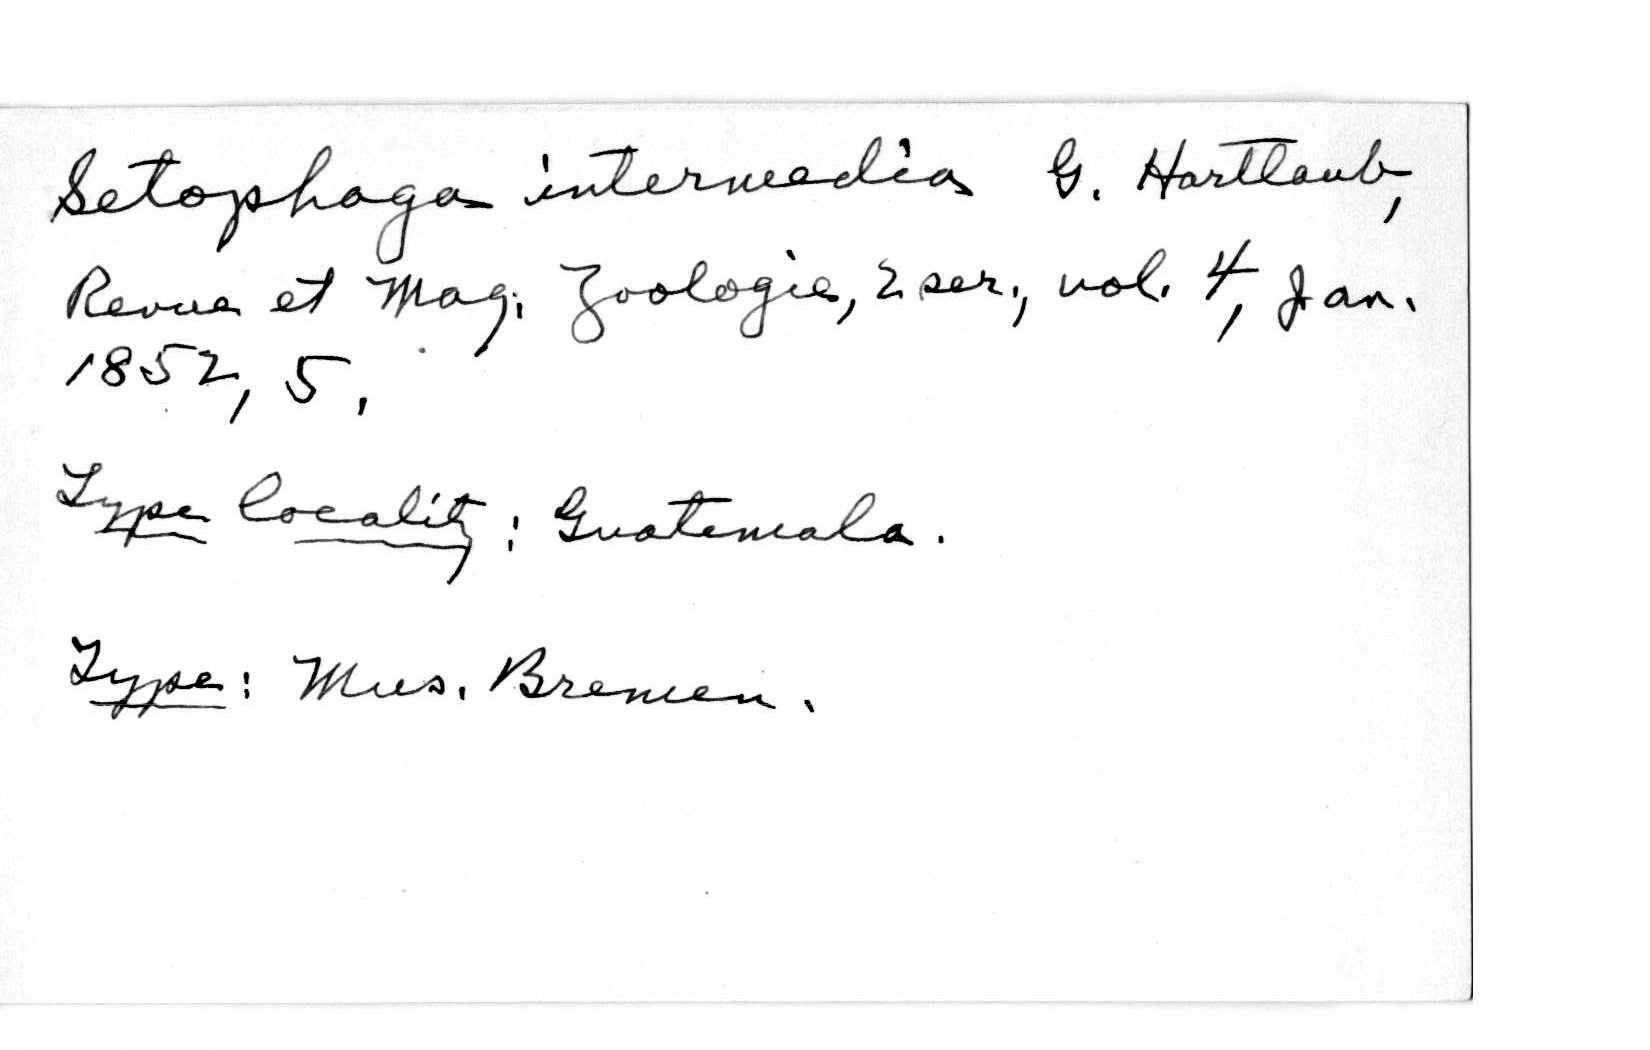 Setophaga intermedia G. Hartlaub,
Revue et Mag. Zoologie, 2 ser., vol. 4, Jan.
1852, 5.
Type locality: Guatemala.
Type: Mus. Bremen.